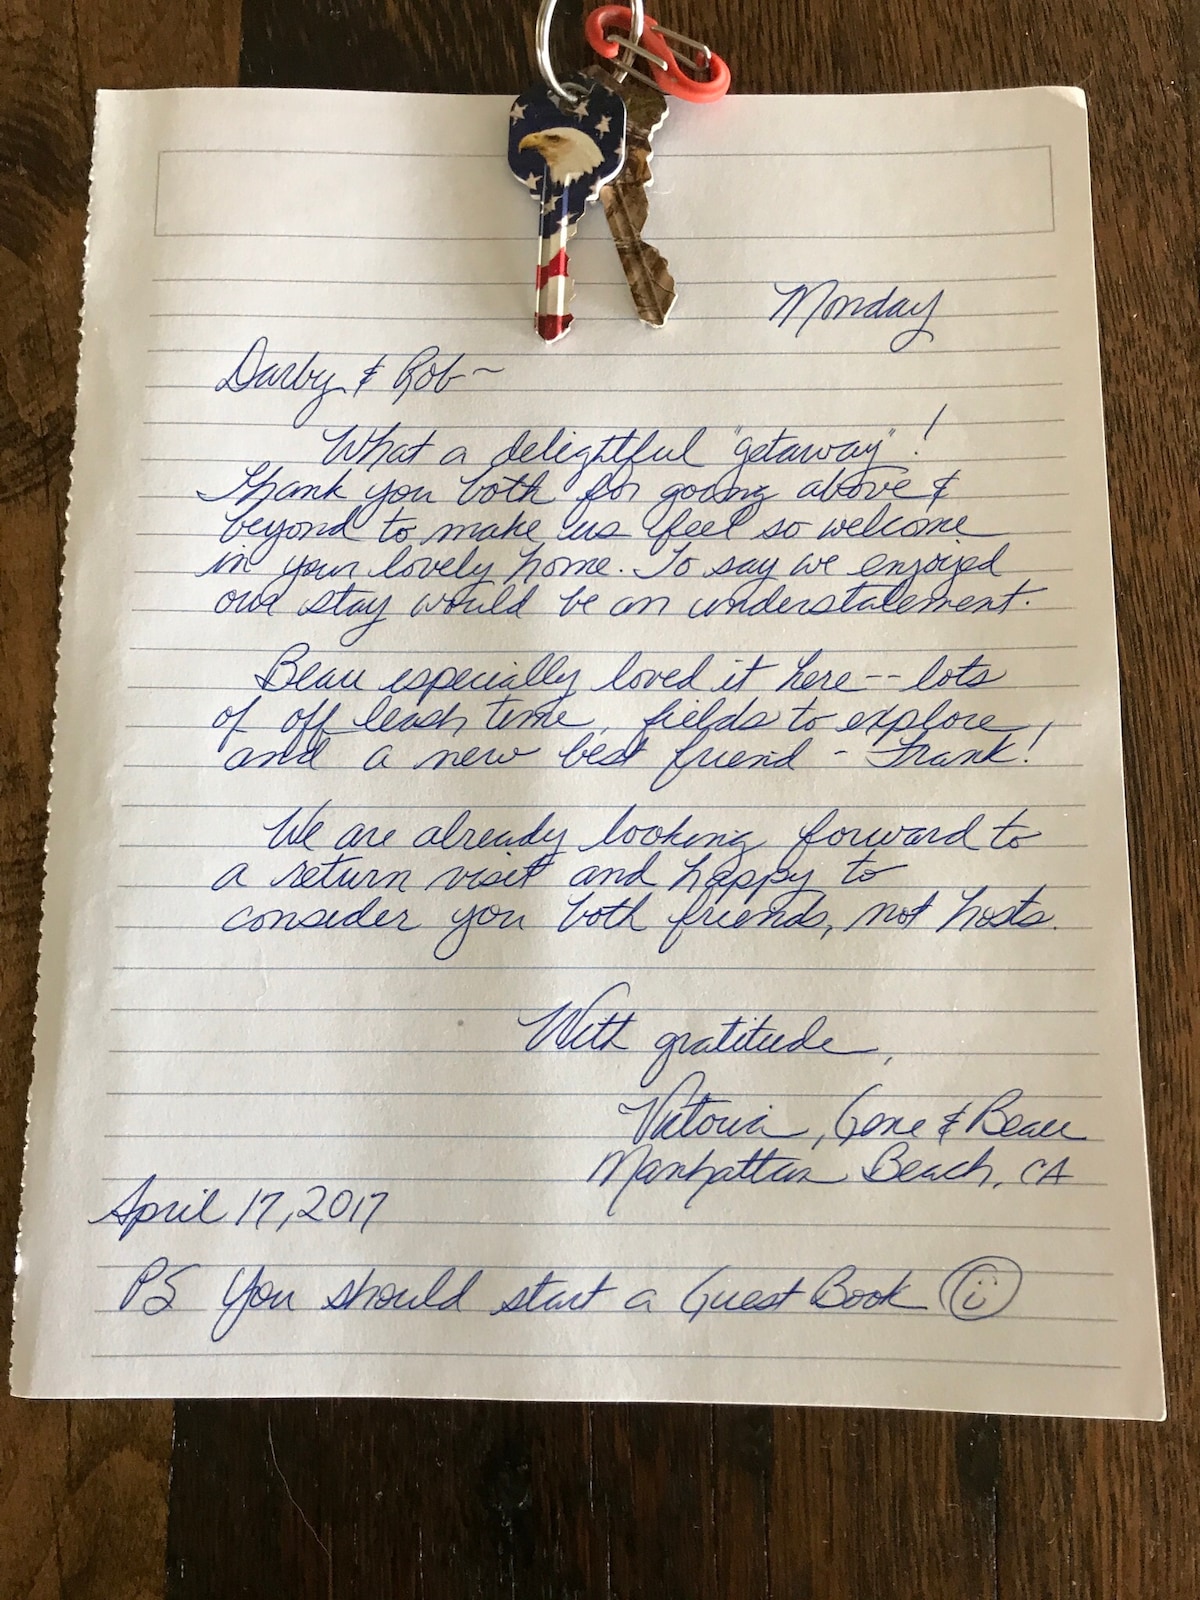 Monday
Darby & Rob~
What a delightful "getaway"!
Thank you both for going above &
beyond to make us feel so welcome
in your lovely home. To say we enjoyed
our stay would be an understatement.
Beau especially loved it here-- lots
of off leash time, fields to explore,
and a new best friend - Frank!
We are already looking forward to
a return visit and happy to
consider you both friends, not hosts.
With gratitude,
Victoria, Gene & Beau
Manhattan Beach, CA
April 17, 2017
PS You should start a Guest Book ☺